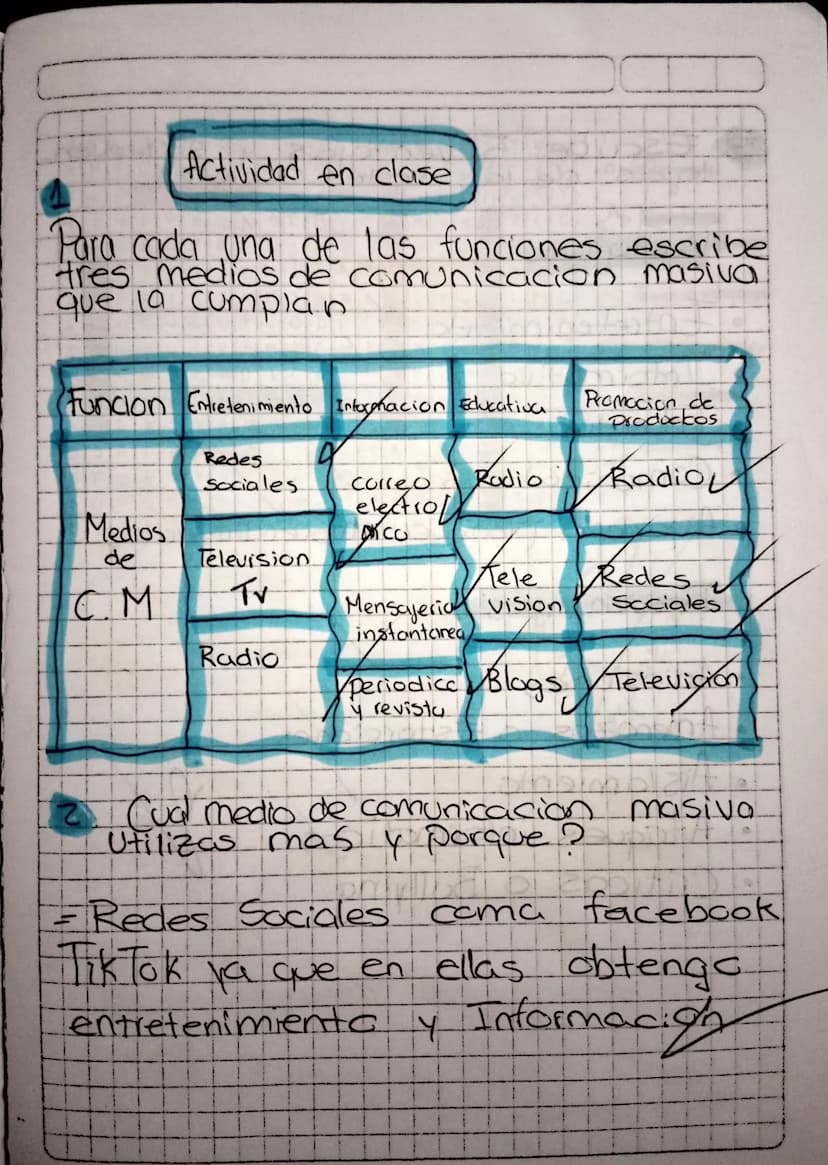 Actividad en clase
1
Para cada una de las funciones escribe
tres medios de comunicacion masiva
que la cumplan
Funcion Entretenimiento Informacion Educativa Promocion de
productos
Medios
de
C.M
Redes
sociales
Television
Tv
Radio
correo
electro
nico
Mensajeria
instantanea
periodico
y revista
Radio
Tele
vision
Blogs
Radio
Redes
Sociales
Televición
2 Cual medio de comunicacion masiva
utilizas mas y porque?
= Redes Sociales como facebook
TikTok ya que en ellas obtengo
entretenimiento y Información